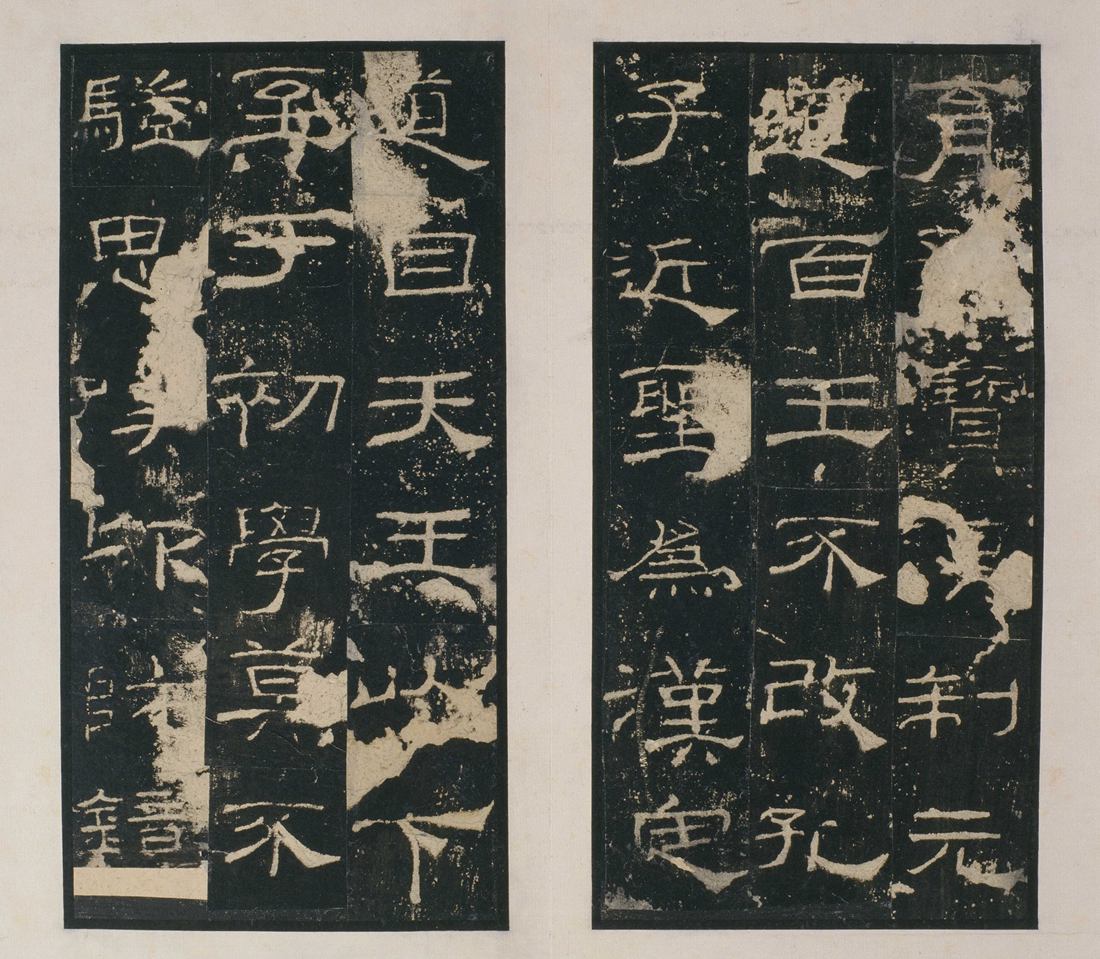 育寶制元
道百王不改孔
子近聖爲漢定
道自天王以下
至于初學莫不
驥思歎卬師鏡